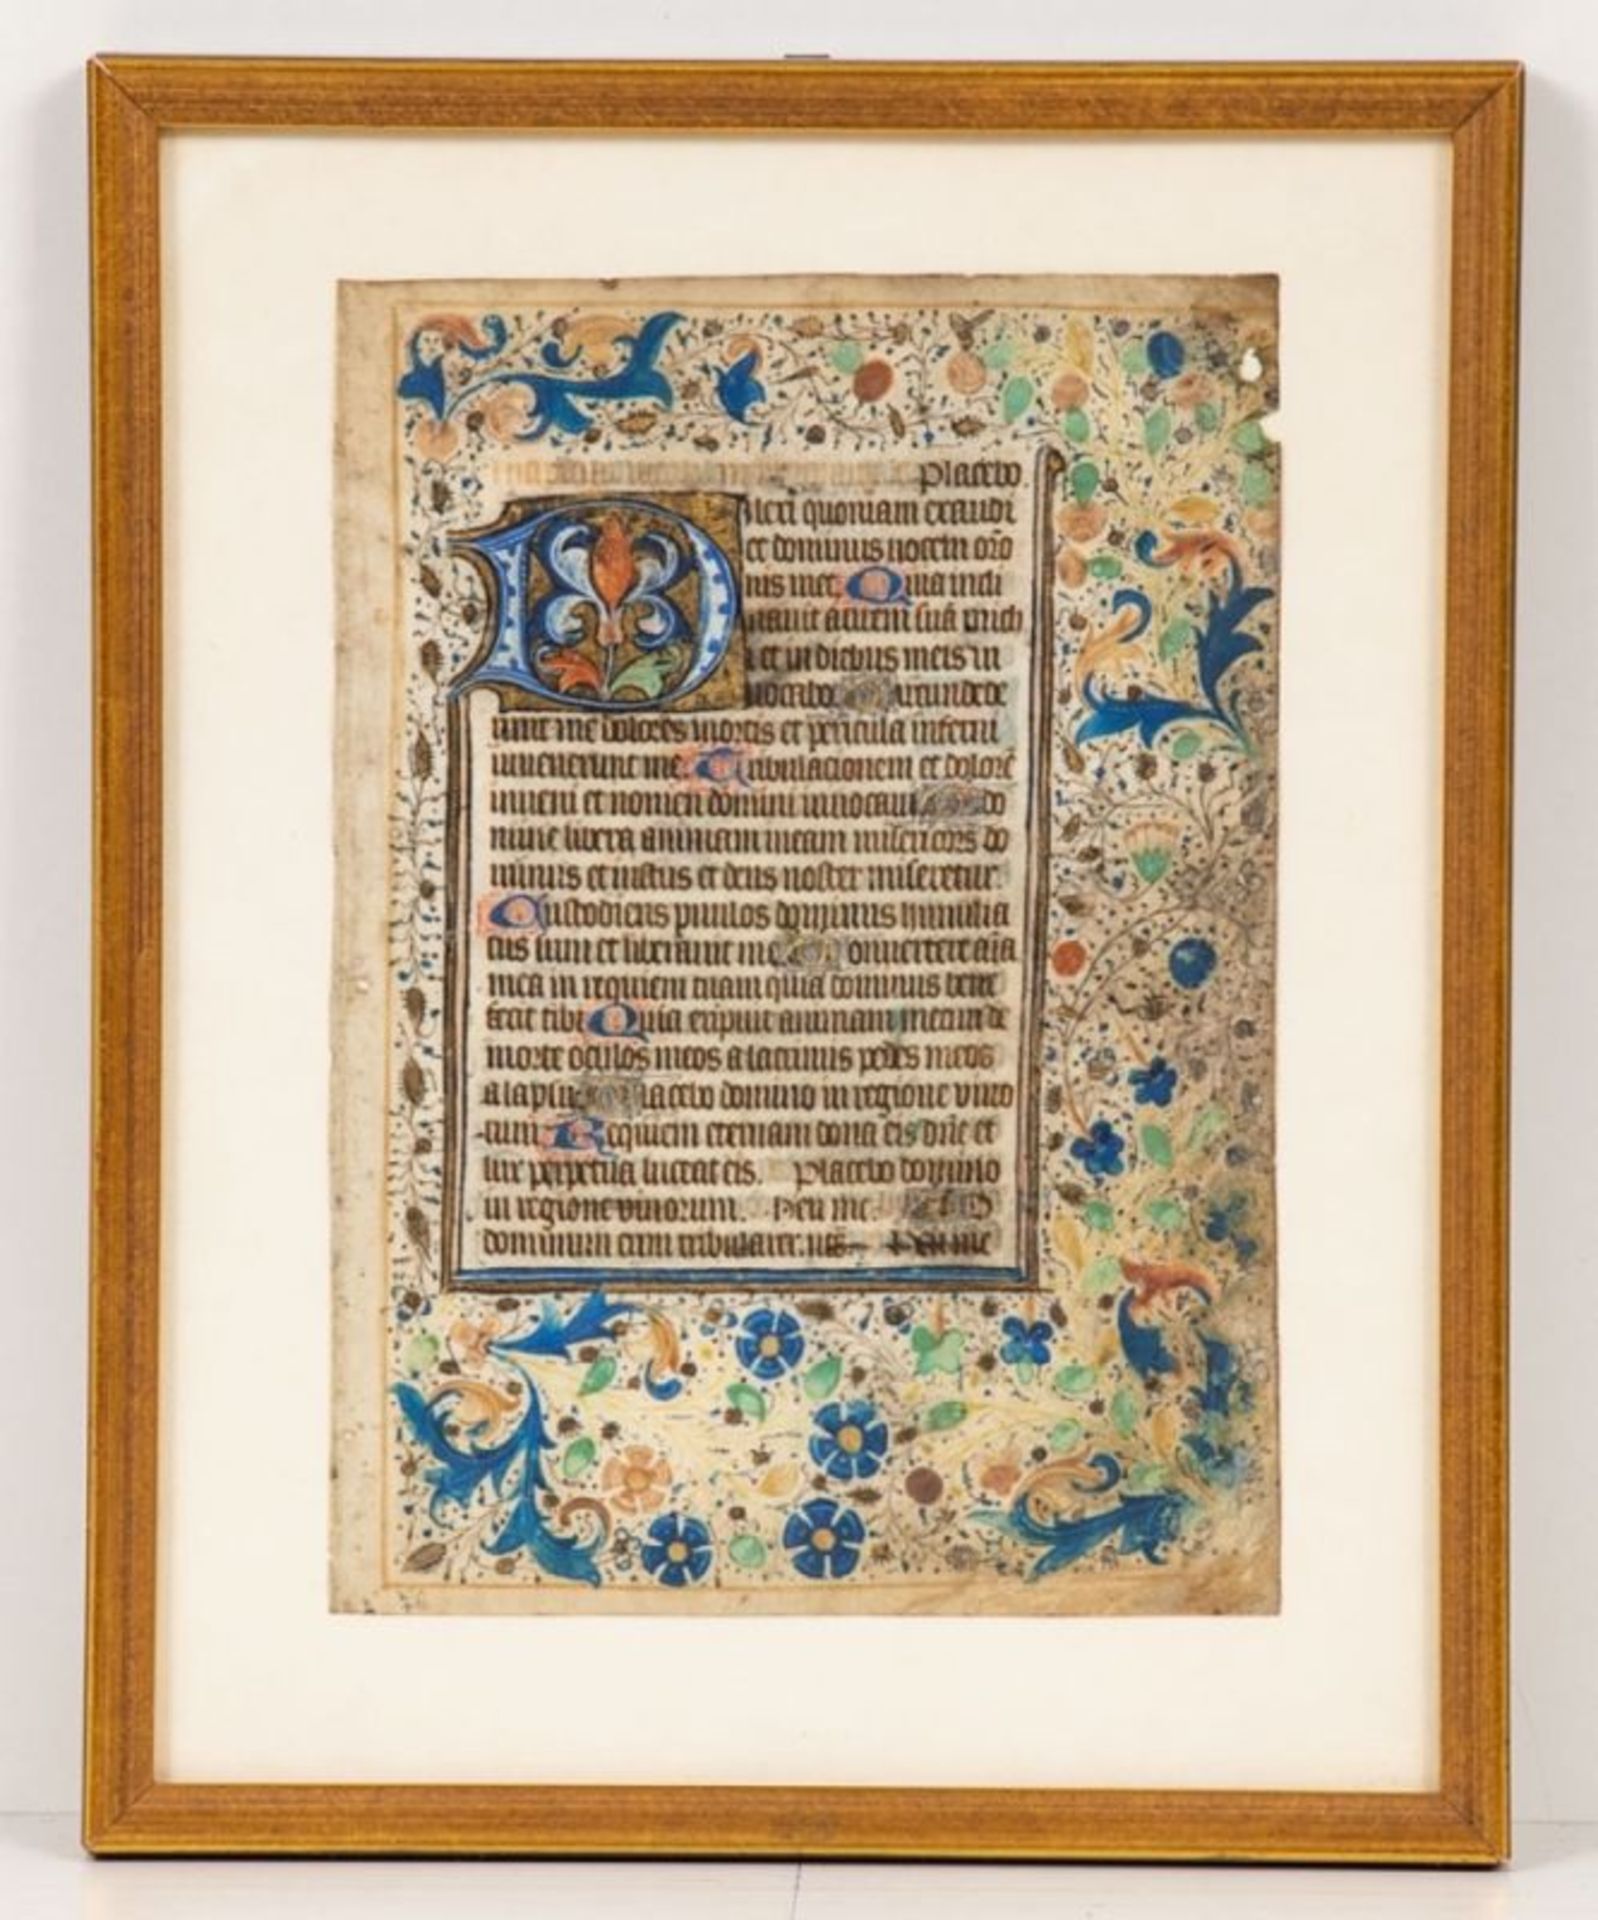 Placebo
Dilexi quoniam exaudi
et dominus vocem oro
nis mee Quia incli
navit aurem suā mich
i et in diebus meis in
vocabo Circumdede
runt me dolores mortis et pericula inferni
invenerunt me Tribulacionem et dolorē
inveni et nomen domini invocavi O do
mine libera animam meam misericors do
minus et iustus et deus noster miseretur.
Custodiens pvulos dominus humilia
tus sum et liberavit me Convertere aīa
mea in requiem tuam quia dominus bene
fecit tibi Quia eripuit animam meam de
morte oculos meos a lacrimis pedes meos
a lapsu Placebo domino in regione vivo
rum Requiem eternam dona eis dn̄e et
lux perpetua luceat eis. Placebo domino
in regione vivorum. Heu me. D
dominum cum tribularer. Heu me